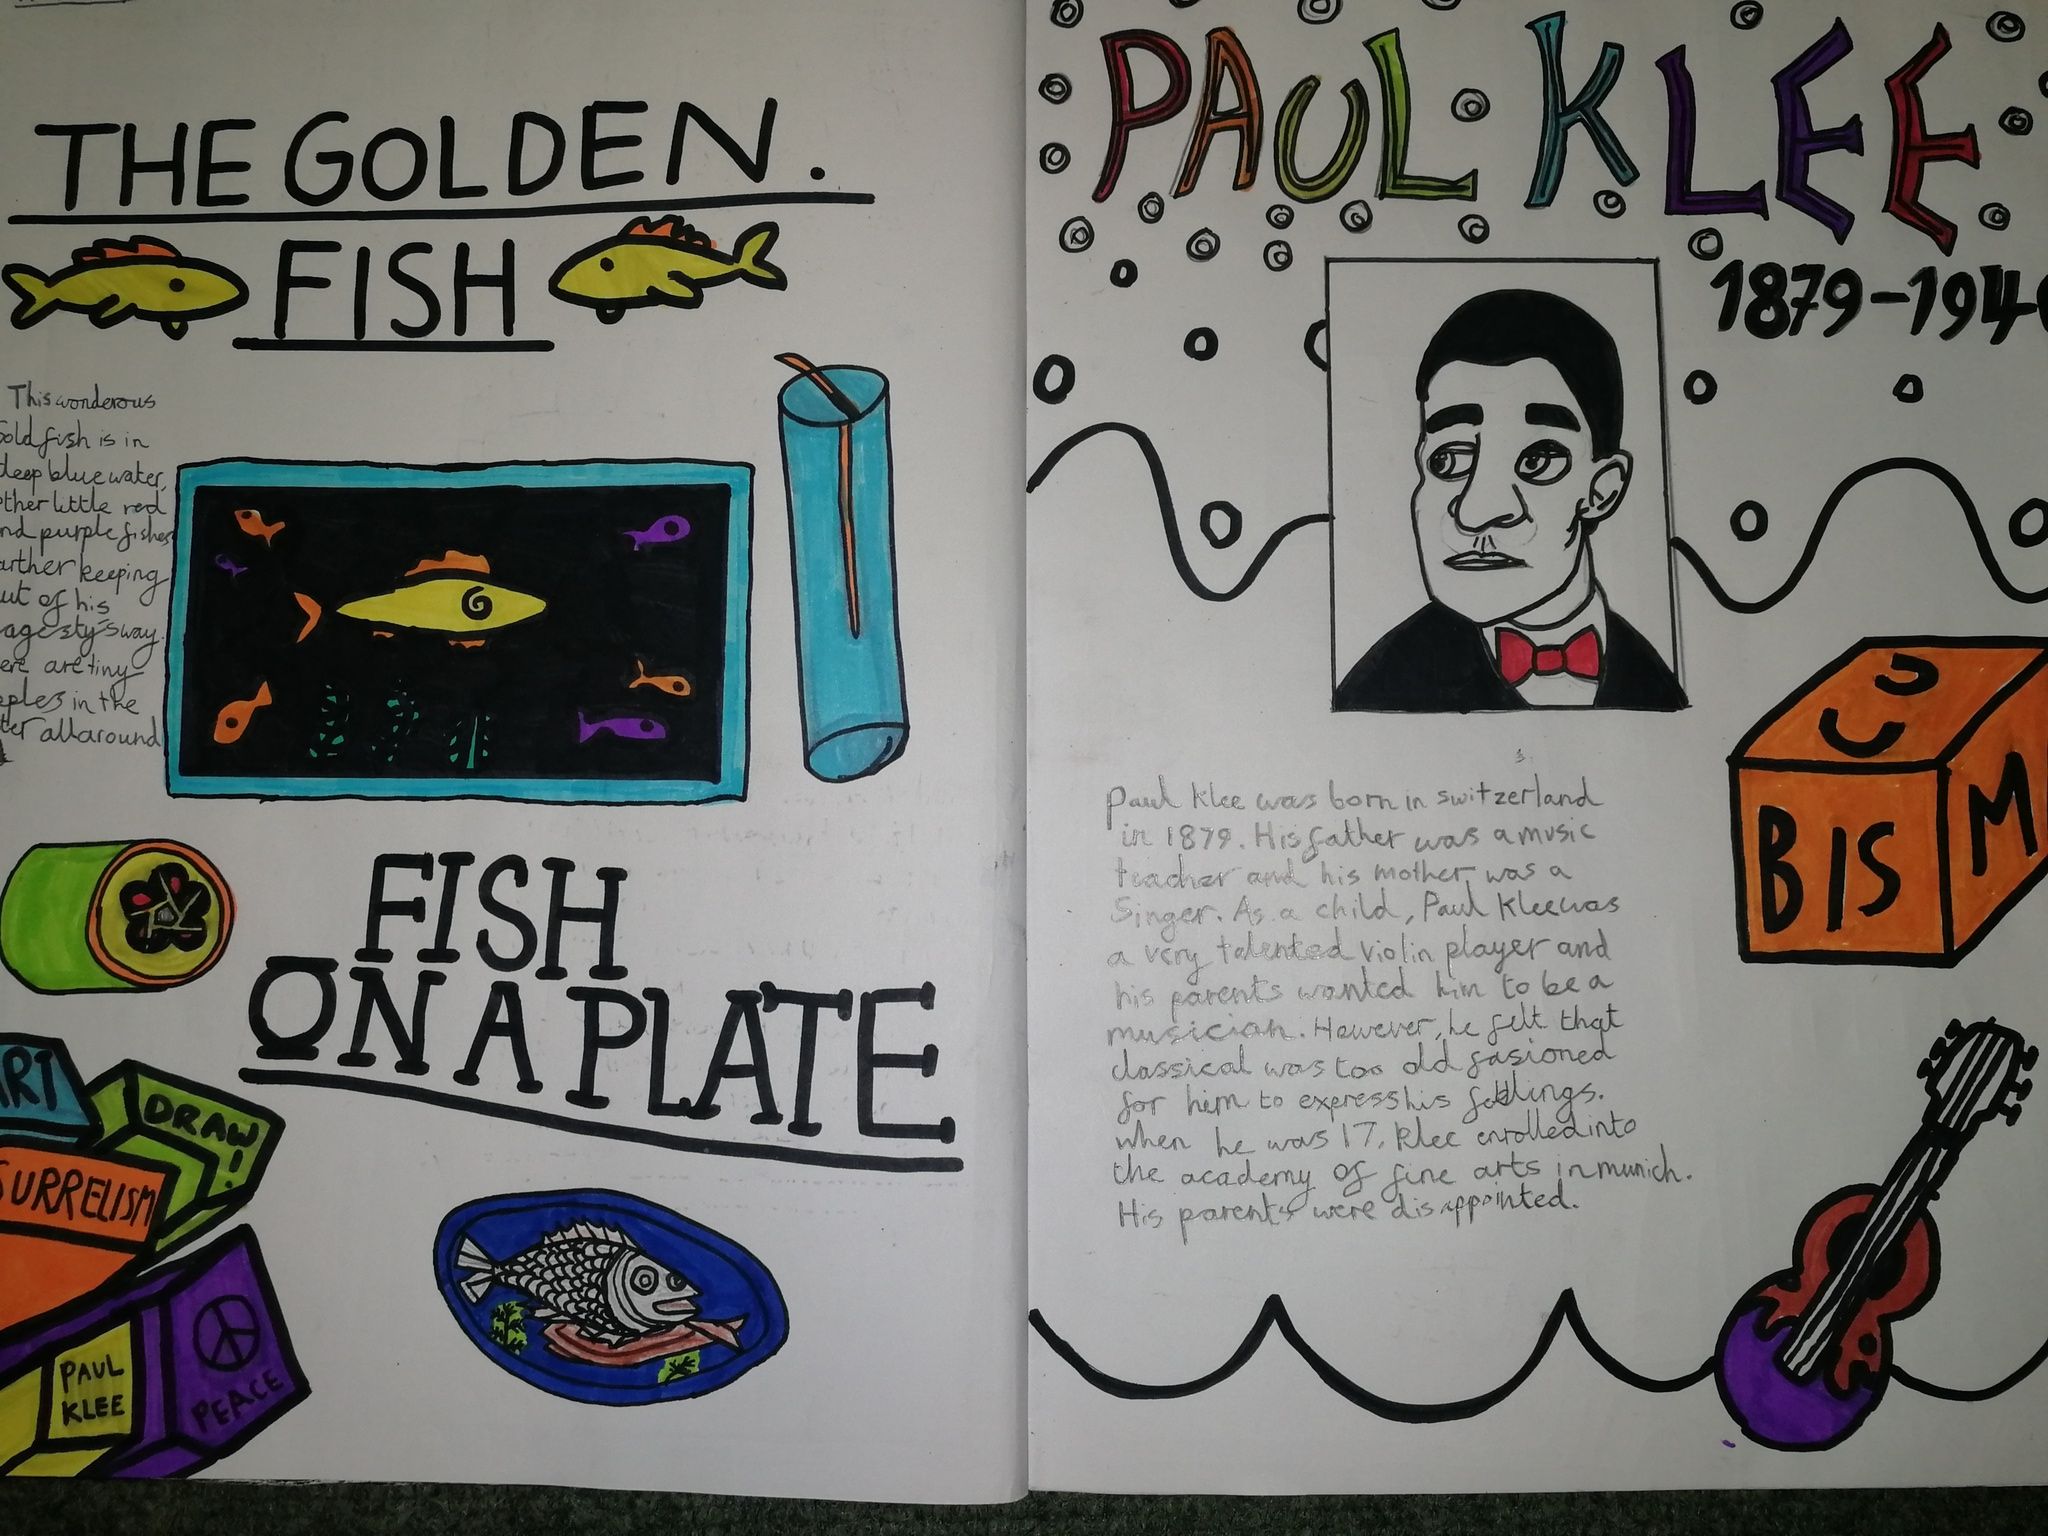 THE GOLDEN.
FISH
This wonderous
Gold fish is in
deep blue water,
other little red
and purple fishes
arther keeping
out of his
agesty's way.
ere are tiny
pples in the
ter all around
FISH
ON A PLATE
ART
DRAW!
SURRELISM
PAUL
KLEE
PEACE
PAUL KLEE
1879-1940
CU
BIS
M
Paul Klee was born in switzerland
in 1879. His father was a music
teacher and his mother was a
Singer. As a child, Paul Klee was
a very talented violin player and
his parents wanted him to be a
musician. However, he felt that
classical was too old fasioned
for him to express his feelings.
when he was 17, Klee enrolled into
the academy of fine arts in munich.
His parents were disappointed.